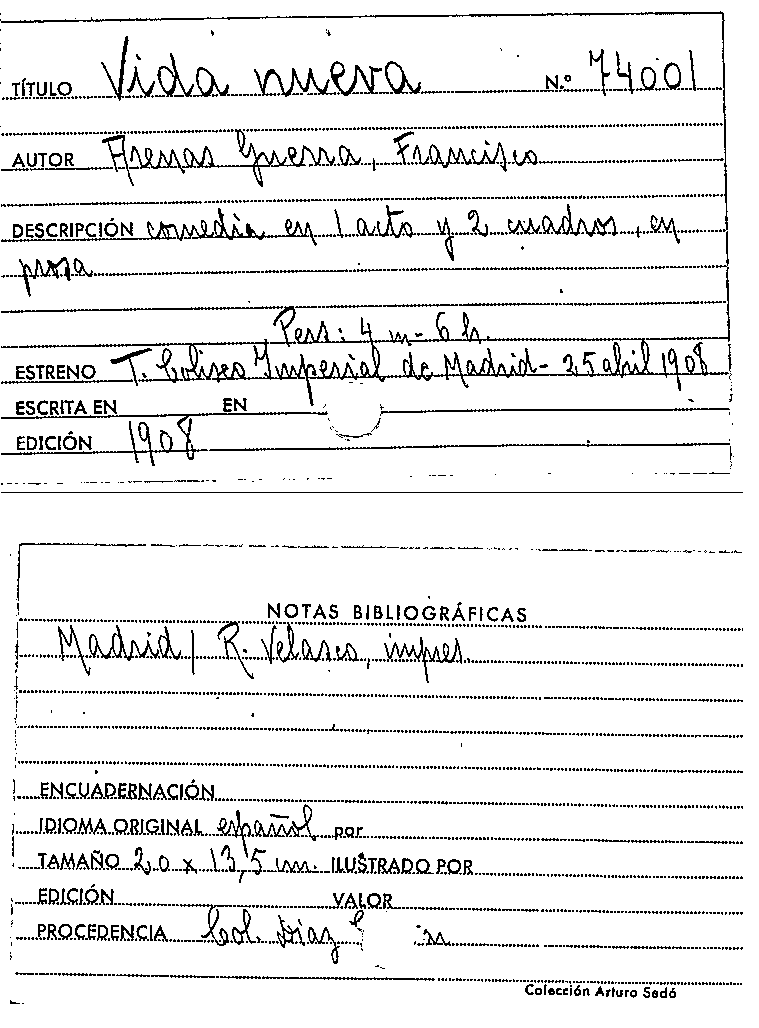 TÍTULO Vida nueva N.º 74001
AUTOR Arenas Guerra, Francisco
DESCRIPCIÓN comedia en 1 acto y 2 cuadros, en
prosa
Pers: 4 m - 6 h.
ESTRENO T. Coliseo Imperial de Madrid - 25 abril 1908
ESCRITA EN EN
EDICIÓN 1908
NOTAS BIBLIOGRÁFICAS
Madrid / R. Velasco, impres.
ENCUADERNACIÓN
IDIOMA ORIGINAL español por
TAMAÑO 20 x 13,5 cm. ILUSTRADO POR
EDICIÓN VALOR
PROCEDENCIA Col. Díaz
Colección Arturo Sedó